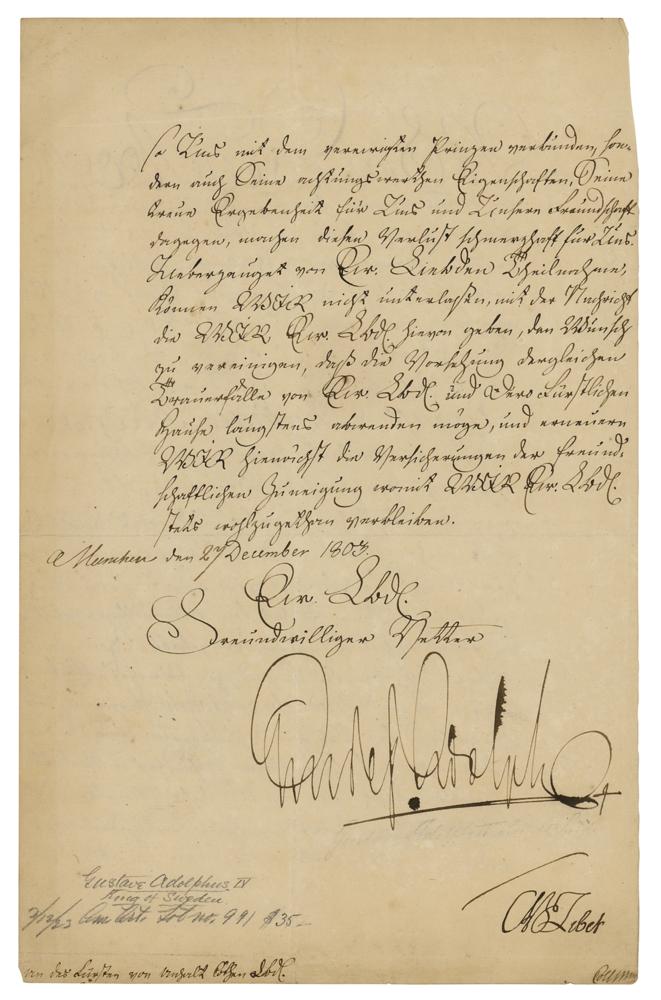 so Uns mit dem verewigten Prinzen verbunden, son-
dern auch Seine achtungswerthen Eigenschaften, Seine
treue Ergebenheit für Uns und Unsere Freundschaft
dagegen, machen diesen Verlust schmerzhaft für Uns.
Ueberzeuget von Ew. Liebden Theilnahme,
können WIR nicht unterlaßen, mit der Nachricht
die WIR Ew. Lbd. hievon geben, den Wunsch
zu vereinigen, daß die Vorsehung dergleichen
Trauerfälle von Ew. Lbd. und Dero Fürstlichen
Hause längstens abwenden möge, und erneuern
WIR hienächst die Versicherungen der freund-
schaftlichen Zuneigung womit WIR Ew. Lbd.
stets wohlzugethan verbleiben.
München den 27 December 1803.
Ew. Lbd.
Freundwilliger Vetter
Gustaf Adolph
Gustave Adolphus IV
King of Sweden.
Am. Art. Lot no. 991 $35–
An des Fürsten von Anhalt Cöthen Lbd.